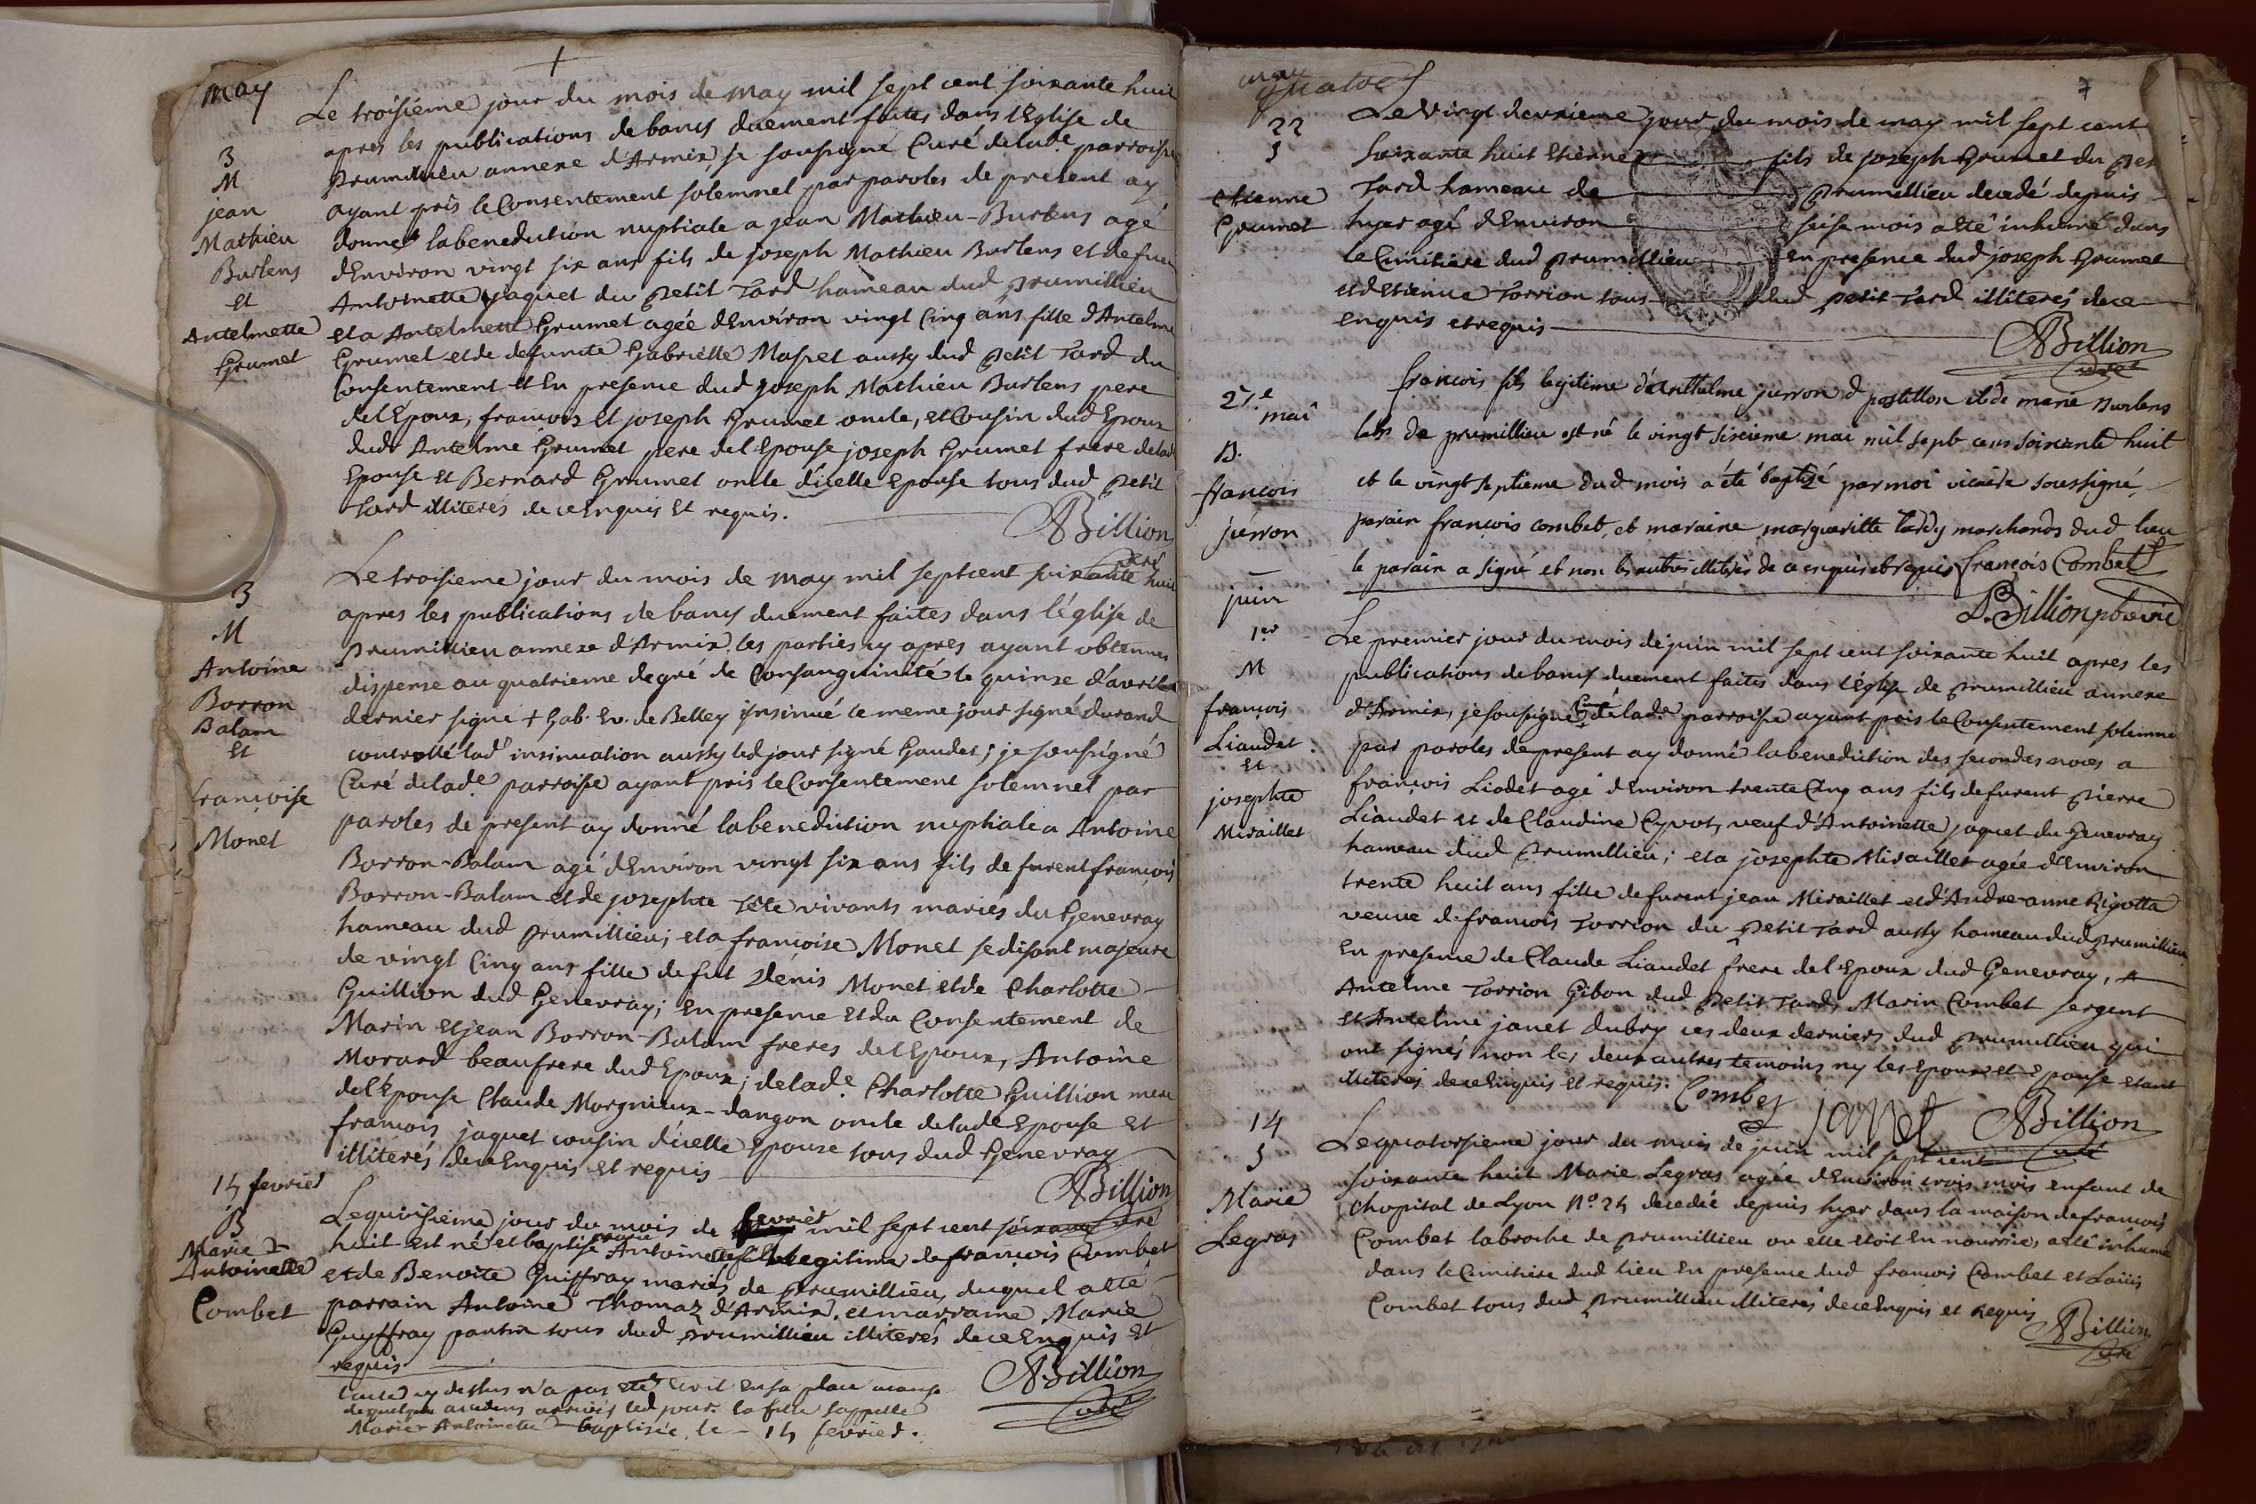 may
Le troisiéme jour du mois de may mil sept cent soixante huit
apres les publications de bancs duement faites dans l'Eglise de
prumillieu annexe d'Armix, je soussigné Curé de lade parroisse
ayant pris le Consentement solemnel par paroles de present ay
donné la benediction nuptiale a jean Mathieu-Burlens agé
d'Environ vingt six ans fils de joseph Mathieu Burlens et defunte
Antoinette jaquet du petit Tard hameau dud prumillieu
et a Antelmette Grumet agée d'Environ vingt Cinq ans fille d'Antelme
Grumet et de defuncte Gabrielle Maspet aussy dud petit Tard du
Consentement et En presence dud joseph Mathieu Burlens pere
de l'Epoux, francois et joseph Grumet oncle, et Cousin dud Epoux
dud Antelme Grumet pere de l'Epouse joseph Grumet frere de lad
Epouse et Bernard Grumet oncle d'icelle Epouse tous dud petit
tard illiterés de ce Enquis et requis.
Billion
Curé
3
M
jean
Mathieu
Burlens
et
Antelmette
Grumet
Le troisieme jour du mois de may mil sept cent soixante huit
apres les publications de bancs duement faites dans l'église de
prumillieu annexe d'Armix, les parties cy apres ayant obtenues
dispense au quatrieme degré de Consanguinité le quinze d'avril
dernier signé + Gab. Ev. de Belley insinué le meme jour signé durand
controllé lad insinuation aussy led jour signé Gaudet; je soussigné
Curé de lade parroisse ayant pris le Consentement solemnel par
paroles de present ay donné la benediction nuptiale a Antoine
Borron-Balam agé d'Environ vingt six ans fils de furent francois
Borron-Balam et de josephte Tête vivants mariés du Genevray
hameau dud prumillieu; et a francoise Monet se disant majeure
de vingt Cinq ans fille de fut Denis Monet et de Charlotte
Guillion dud Genevray; En presence et du Consentement de
Marin et jean Borron-Balam freres de l'Epoux, Antoine
Morard beaufrere dud Epoux; de lade Charlotte Guillion mere
de l'Epouse Claude Morgnieux-dangon oncle de lade Epouse et
francois jaquet cousin d'icelle Epouse tous dud Genevray
illitérés de ce Enquis et requis
Billion
Curé
3
M
Antoine
Borron
Balam
et
francoise
Monet
Le quinsieme jour du mois de fevrier mil sept cent soixante
huit est né et baptisé marie Antoinette fille legitime de francois Combet
et de Benoite Guiffray mariés de prumillieu, duquel a eté
parrain Antoine Thomaz d'Armix, et marraine Marie
Guyffray tous dud prumillieu illiterés de ce Enquis et
requis
Billion
Curé
15 fevrier
B
Marie
Antoinette
Combet
l'acte cy dessus n'a pas eté Ecrit en sa place acause
de quelques accidens arrivés led jour. la fille s'appelle
Marie Antoinette baptisée le 15 fevrier.
may
quatorz
7
22
S
Etienne
Grumet
Le vingt deuxieme jour du mois de may mil sept cent
soixante huit Etienne fils de joseph Grumet du petit
Tard hameau de prumillieu decedé depuis
hyer agé d'Environ seise mois a eté inhumé dans
le Cimitiere dud prumillieu En presence dud joseph Grumet
et d'Etienne Torrion tous dud petit Tard illiterés de ce
enquis et requis
Billion
Curé
27.e
mai
B.
francois
juron
francois fils legitime d'Anthelme jurron d postillon et de marie Burlens
labs de prumillieu est né le vingt sixieme mai mil sept cens soixante huit
et le vingt septieme dud mois a été baptisé par moi vicaire soussigné,
parain françois combet, et maraine margueritte tardy marchands dud lieu
le parain a signé et non les autres illitérés de ce enquis et requis françois Combet
Billion ptre vic
juin
1er
M
françois
Liaudet
et
josephte
Miraillet
Le premier jour du mois de juin mil sept cent soixante huit apres les
publications de bancs duement faites dans l'église de prumillieu annexe
d'Armix, je soussigné Curé de lade parroisse ayant pris le Consentement solemnel
par paroles de present ay donné la benediction des secondes noces a
françois Liodet agé d'Environ trente Cinq ans fils de furent pierre
Liaudet et de Claudine Cyvot, veuf d'Antoinette jaquet du Genevray
hameau dud prumillieu; et a josephte Miraillet agée d'Environ
trente huit ans fille de furent jean Miraillet et d'Andre-anne Rigotta
veuve de francois Torrion du petit Tard aussy hameau dud prumillieu
En presence de Claude Liaudet frere de l'Epoux dud Genevray,
Antelme Torrion Gibon dud petit Tard, Marin Combet sergent
et Antelme janet dubry ces deux derniers dud prumillieu qui
ont signés non les deux autres temoins ny les Epoux et Epouse etant
illiterés de ce Enquis et requis. Combet janet Billion
Curé
14
S
Marie
Legras
Le quatorsieme jour du mois de juin mil sept cent
soixante huit Marie Legras agée d'Environ trois mois enfant de
l'hopital de Lyon No. 25 decedée depuis hyer dans la maison de francois
Combet labroche de prumillieu ou elle etoit En nourrice, a eté inhumé
dans le Cimitiere dud lieu En presence dud francois Combet et Loüis
Combet tous dud prumillieu illiterés de ce Enquis et Requis
Billion
Curé